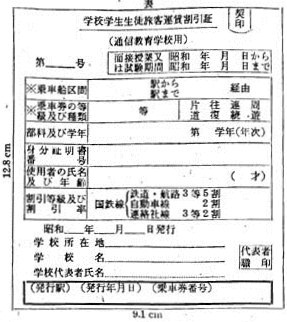 表
学校学生生徒旅客運賃割引証
契印
(通信教育学校用)
第 号
面接授業又は試験期間
昭和 年 月 日から
昭和 年 月 日まで
※乗車船区間
駅から
駅まで
経由
※乗車券の等級及び種類
等
片道 往復 連続 周遊
部科及び学年
第 学年(年次)
身分証明書番号
使用者の氏名及び年齢
( 才)
割引等級及び割引率
国鉄線
鉄道・航路 3等5割
自動車線 2割
連絡社線 3等2割
昭和 年 月 日発行
学校所在地
学校名
学校代表者氏名
代表者職印
(発行駅) (発行年月日) (乗車券番号)
12.8 cm
9.1 cm